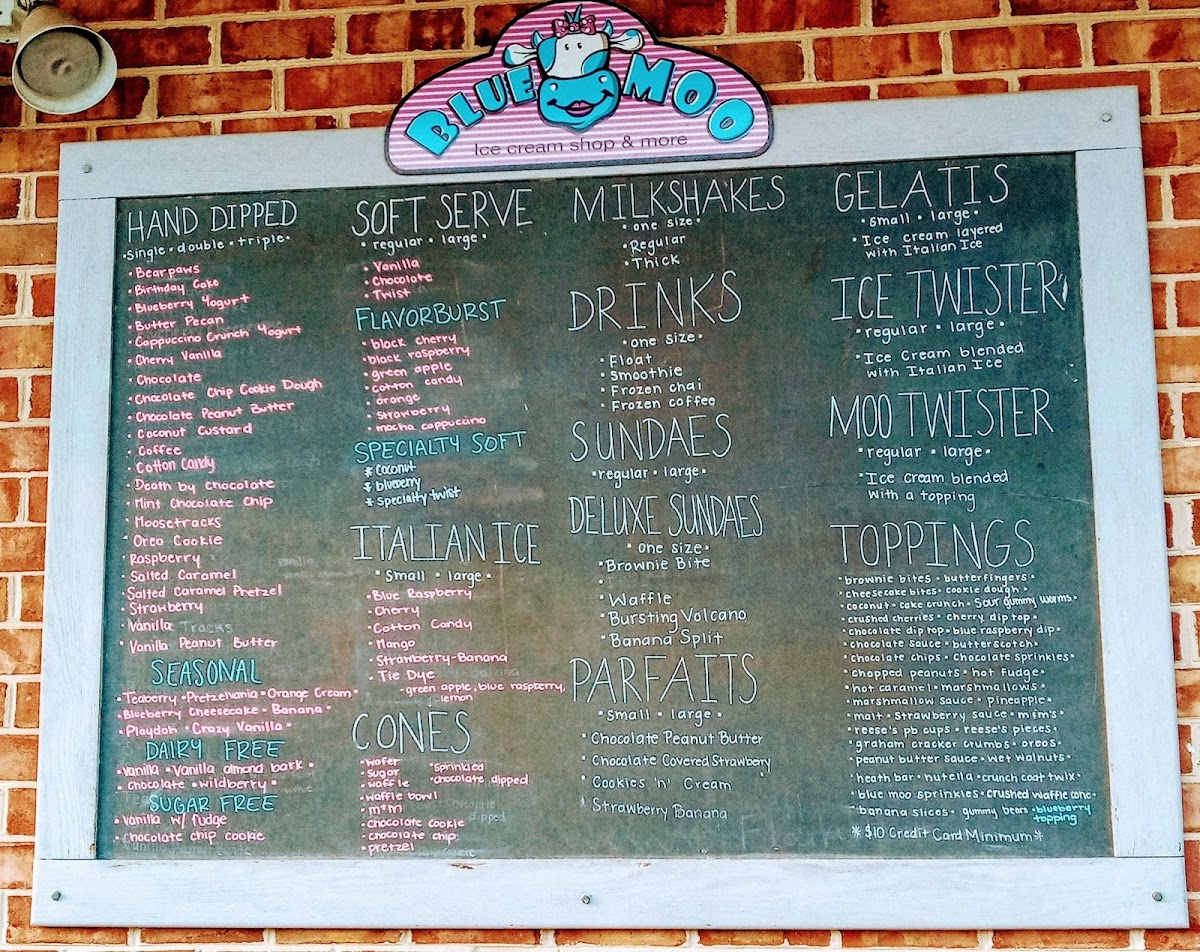 BLUE MOO
Ice cream shop & more
HAND DIPPED
•single•double•triple•
•Bearpaws
•Birthday Cake
•Blueberry Yogurt
•Butter Pecan
•Cappuccino Crunch Yogurt
•Cherry Vanilla
•Chocolate
•Chocolate Chip Cookie Dough
•Chocolate Peanut Butter
•Coconut Custard
•Coffee
•Cotton Candy
•Death by Chocolate
•Mint Chocolate Chip
•Moosetracks
•Oreo Cookie
•Raspberry
•Salted Caramel
•Salted Caramel Pretzel
•Strawberry
•Vanilla
•Vanilla Peanut Butter
SEASONAL
•Teaberry•Pretzelvania•Orange Cream•
•Blueberry Cheesecake•Banana•
•Playdoh•Crazy Vanilla•
DAIRY FREE
•Vanilla•Vanilla almond bark•
•Chocolate•wildberry•
SUGAR FREE
•Vanilla w/ fudge
•Chocolate chip cookie
SOFT SERVE
•regular•large•
•Vanilla
•Chocolate
•Twist
FLAVORBURST
•black cherry
•black raspberry
•green apple
•cotton candy
•orange
•strawberry
•mocha cappuccino
SPECIALTY SOFT
*coconut
*blueberry
*specialty-twist
ITALIAN ICE
•small•large•
•Blue Raspberry
•Cherry
•Cotton Candy
•Mango
•Strawberry-Banana
•Tie Dye
-green apple, blue raspberry,
lemon
CONES
•wafer
•sugar
•waffle
•waffle bowl
•m&m
•chocolate cookie
•chocolate chip
•pretzel
•sprinkled
•chocolate dipped
MILKSHAKES
•one size•
•Regular
•Thick
DRINKS
•one size•
•Float
•Smoothie
•Frozen chai
•Frozen coffee
SUNDAES
•regular•large•
DELUXE SUNDAES
•one size•
•Brownie Bite
•
•Waffle
•Bursting Volcano
•Banana Split
PARFAITS
•small•large•
•Chocolate Peanut Butter
•Chocolate Covered Strawberry
•Cookies 'n' Cream
•Strawberry Banana
GELATIS
•small•large•
•Ice cream layered
with Italian Ice
ICE TWISTER
•regular•large•
•Ice Cream blended
with Italian Ice
MOO TWISTER
•regular•large•
•Ice Cream blended
with a topping
TOPPINGS
•brownie bites•butterfingers•
•cheesecake bites•cookie dough•
•coconut•cake crunch•Sour gummy worms•
•crushed cherries•cherry dip top•
•chocolate dip top•blue raspberry dip•
•chocolate sauce•butterscotch•
•chocolate chips•Chocolate sprinkles•
•chopped peanuts•hot fudge•
•hot caramel•marshmallows•
•marshmallow sauce•pineapple•
•malt•strawberry sauce•m&m's•
•reese's pb cups•reese's pieces•
•graham cracker crumbs•oreos•
•peanut butter sauce•wet walnuts•
•heath bar•nutella•crunch coat twix•
•blue moo sprinkles•crushed waffle cone•
•banana slices•gummy bears•blueberry
topping
*$10 Credit Card Minimum*